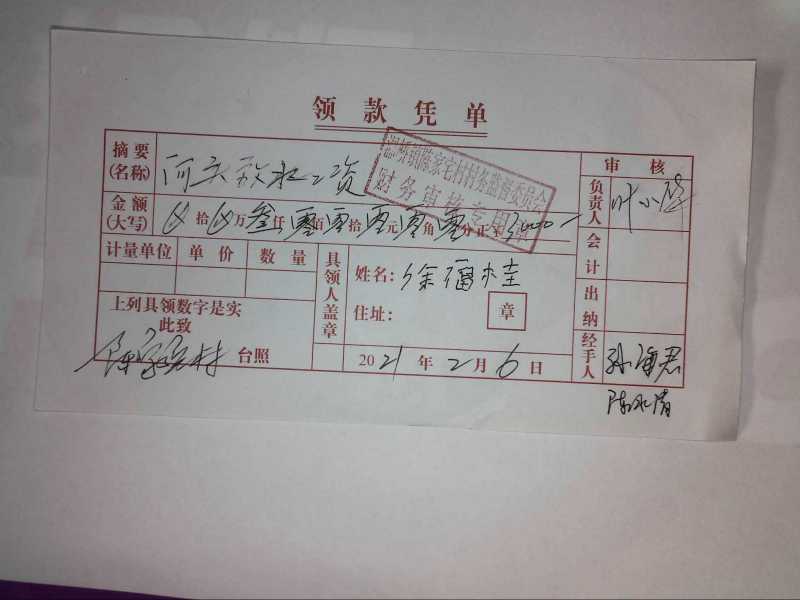 领款凭单
摘要
(名称)
工资
金额
(大写)
拾 万 叁仟 零佰 零拾 零元 零角 零分正 ¥ 3000—
陈家宅村村务监督委员会
财务审核专用章
审核
负责人 叶小萍
会计
出纳
经手人
计量单位 单价 数量
上列具领数字是实
此致
陈家宅村 台照
具领人盖章
姓名：徐福桂
住址：
章
2021年2月6日
陈水清